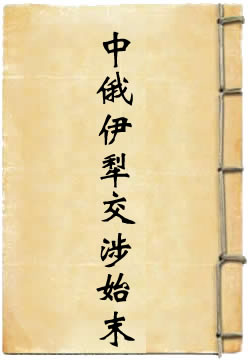 中俄伊犁交涉始末